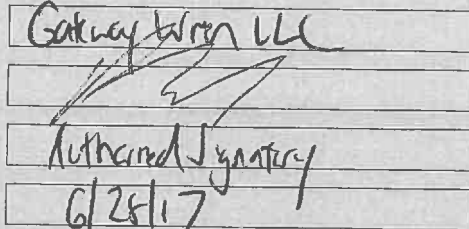 Gateway Wren LLC
Authorized Signatory
6/28/17